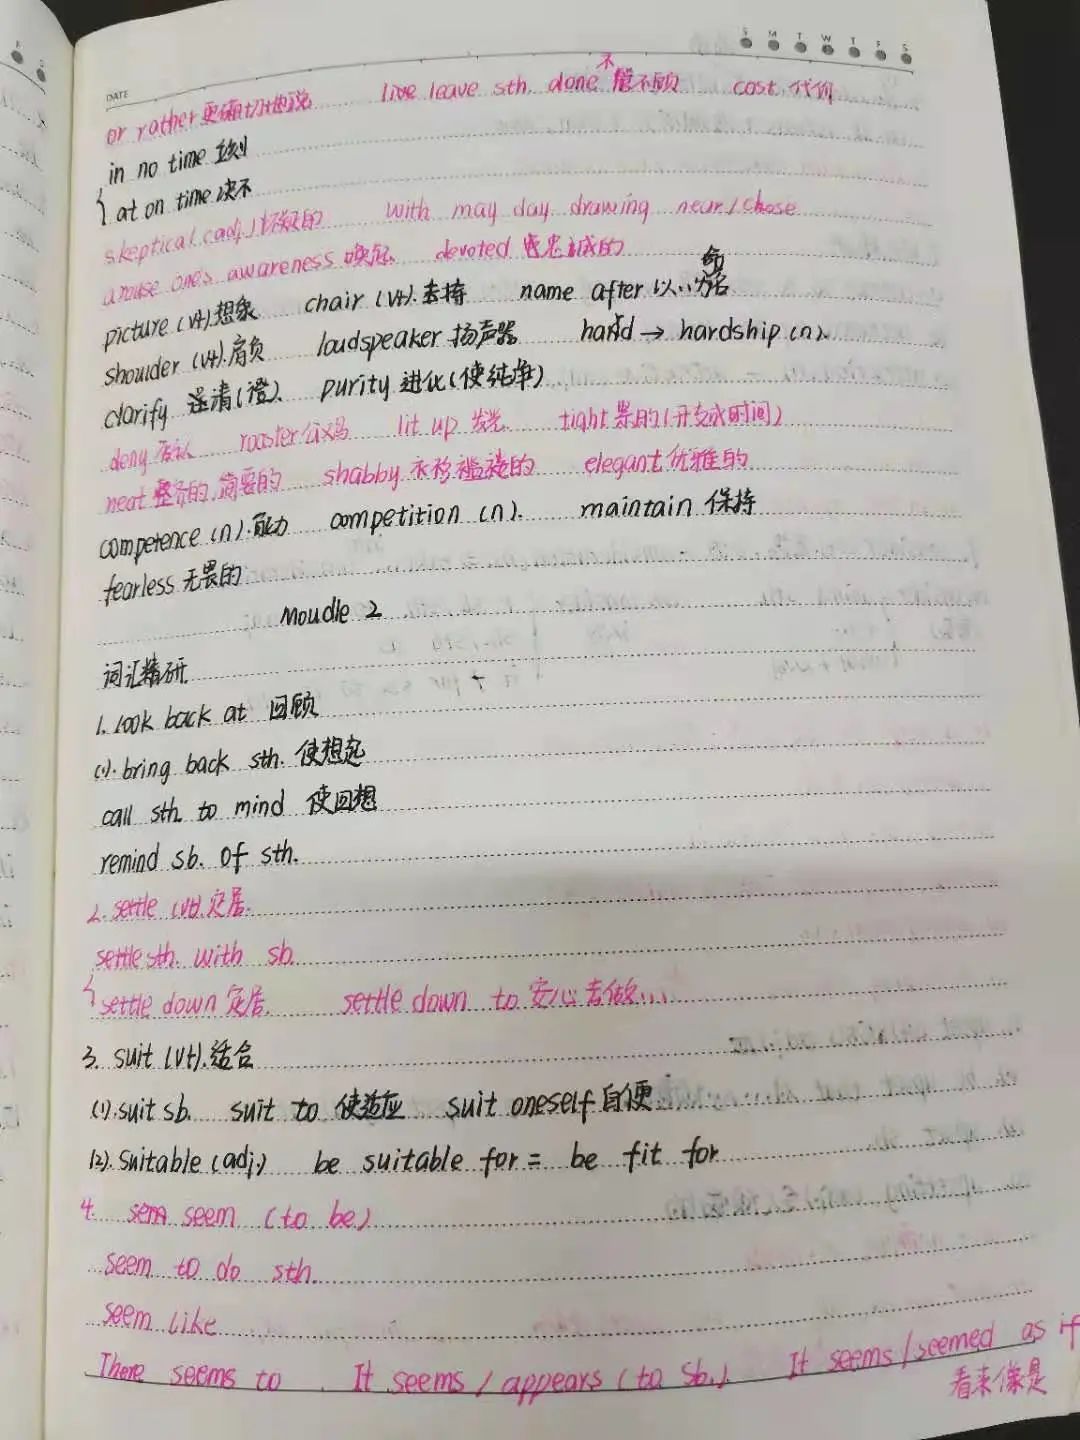 S M T W T F S
DATE
or rather 更确切地说 live leave sth. done 不管不顾 cost 代价
in no time 立刻
at on time 决不
skeptical (adj.) 怀疑的 with may day drawing near/chose
arouse one's awareness 唤起 devoted 忠诚的
picture (vt) 想象 chair (vt). 主持 name after 以...命名
shoulder (vt). 肩负 loudspeaker 扬声器 hard → hardship (n).
clarify 澄清(澄). purity 进化(使纯净)
deny 否认 rooster 公鸡 lit up 发光 tight 紧的(开支或时间)
neat 整齐的,简要的 shabby 衣衫褴褛的 elegant 优雅的
competence (n). 能力 competition (n). maintain 保持
fearless 无畏的
Moudle 2
词汇精研
1. look back at 回顾
(1). bring back sth. 使想起
call sth. to mind 使回想
remind sb. of sth.
2. settle (vt). 定居.
settle sth. with sb.
settle down 定居. settle down to 安心去做...
3. suit (vt). 适合
(1). suit sb. suit to 使适应 suit oneself 自便
(2). suitable (adj.) be suitable for = be fit for
4. seem (to be)
seem to do sth.
seem like
There seems to It seems / appears (to sb.) It seems/seemed as if
看来像是